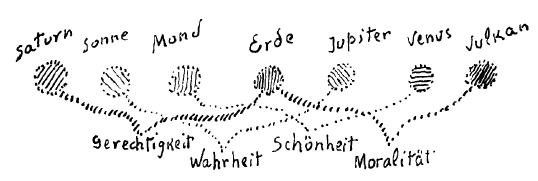 Saturn Sonne Mond Erde Jupiter Venus Vulkan
Gerechtigkeit Wahrheit Schönheit Moralität